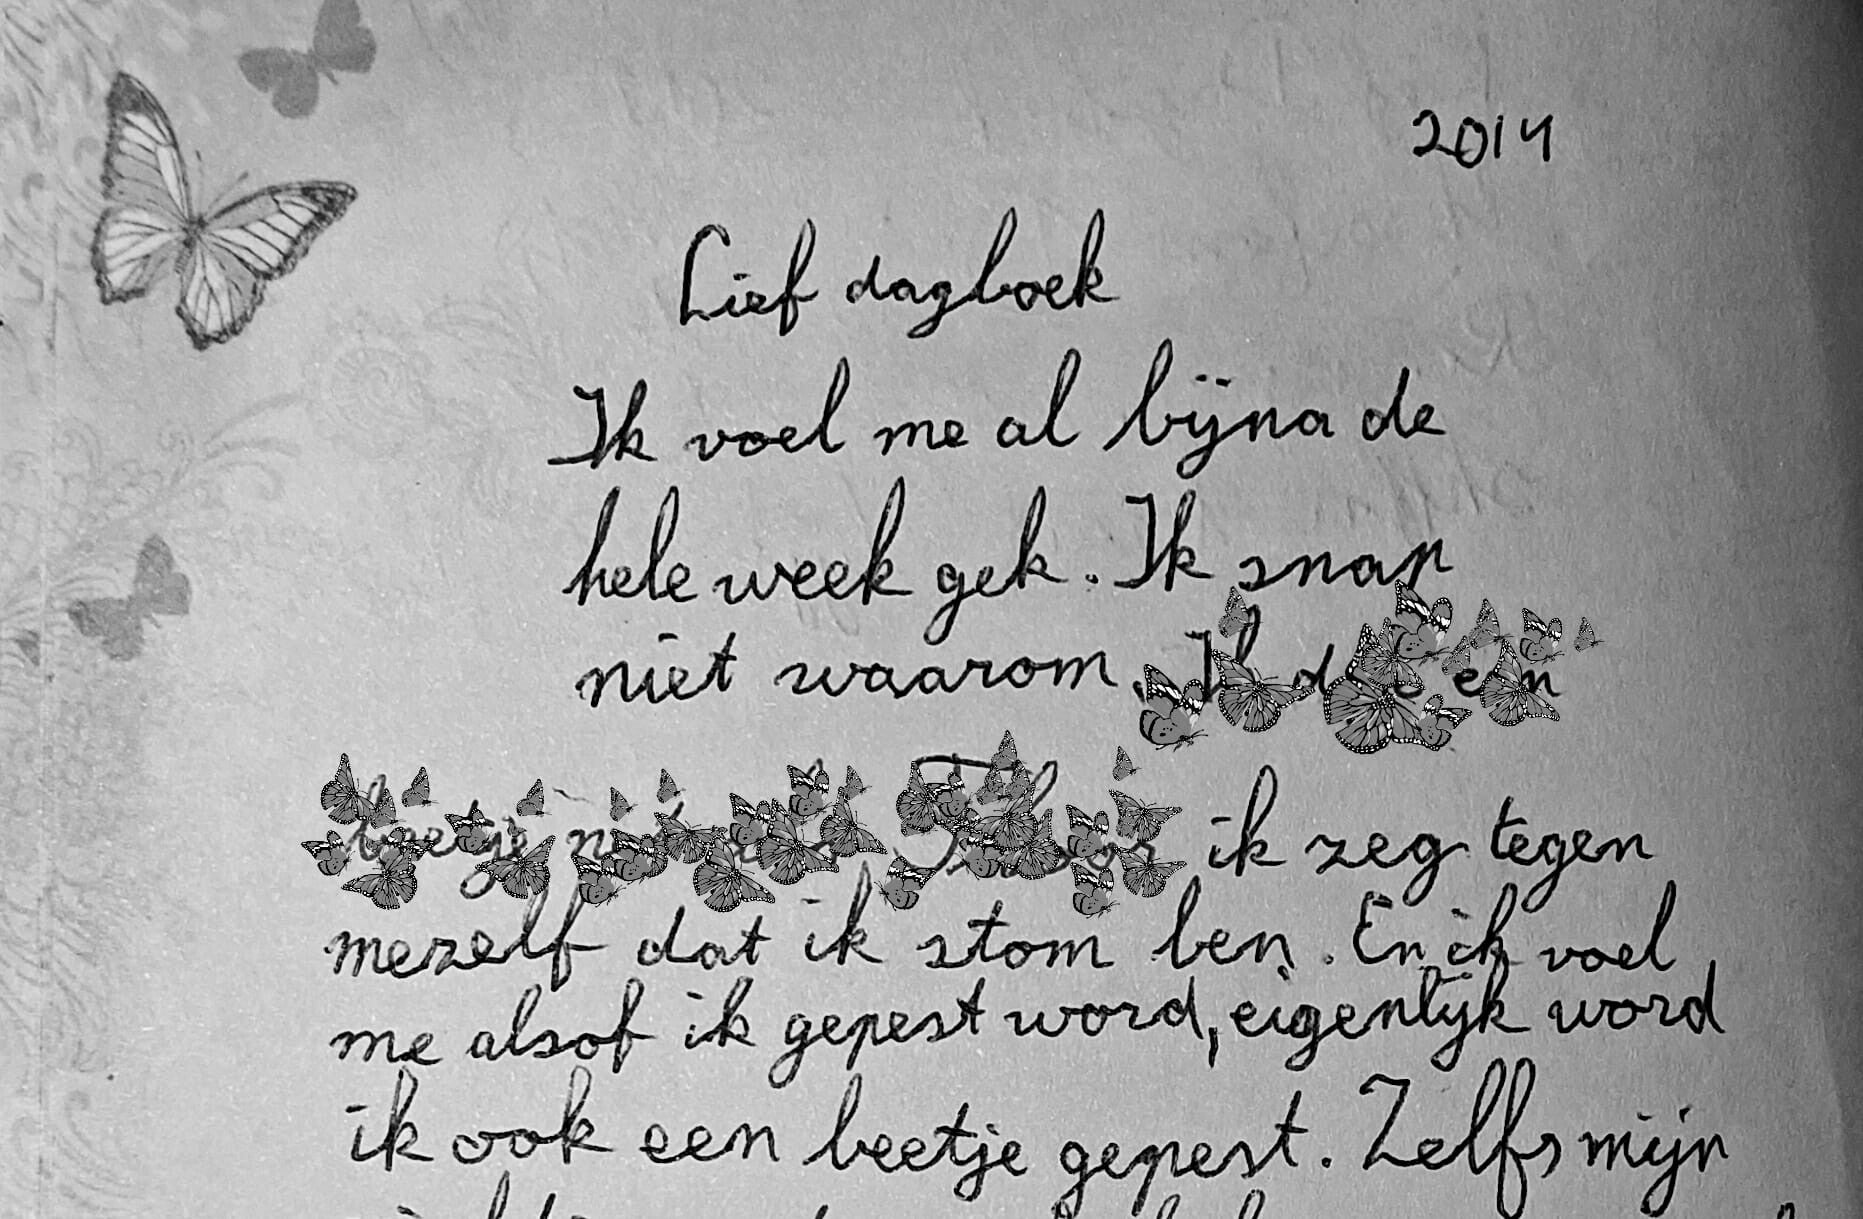 2014
Lief dagboek
Ik voel me al bijna de
hele week gek. Ik snap
niet waarom. Ik een
beetje
ik zeg tegen
mezelf dat ik stom ben. En ik voel
me alsof ik gepest word, eigenlijk word
ik ook een beetje gepest. Zelfs mijn